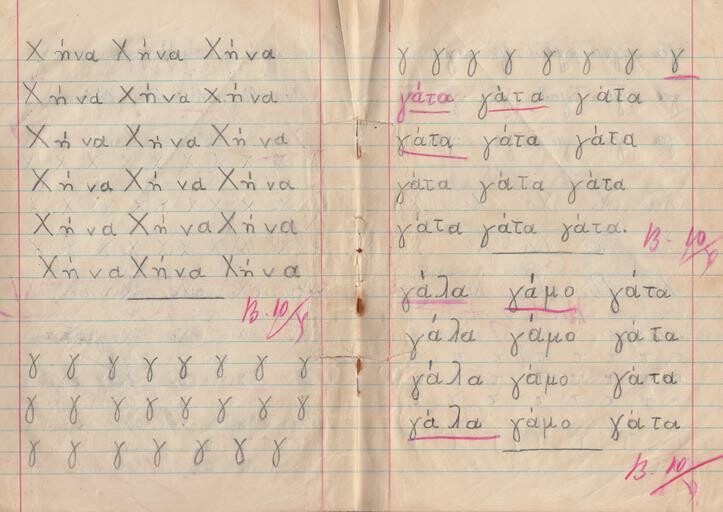 Χήνα Χήνα Χήνα
Χήνα Χήνα Χήνα
Χήνα Χήνα Χήνα
Χήνα Χήνα Χήνα
Χήνα Χήνα Χήνα
Χήνα Χήνα Χήνα
Β. 10
γ γ γ γ γ γ γ γ
γ γ γ γ γ γ γ γ
γ γ γ γ γ γ γ
γ γ γ γ γ γ γ γ
γάτα γάτα γάτα
γάτα γάτα γάτα
γάτα γάτα γάτα
γάτα γάτα γάτα.
Β. 10
γάλα γάμο γάτα
γάλα γάμο γάτα
γάλα γάμο γάτα
γάλα γάμο γάτα
Β. 10